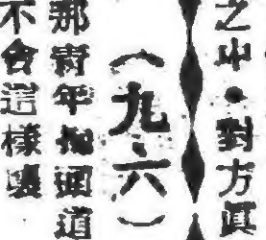 之中，對方眞
（九、六）
那靑年知道
不會這樣